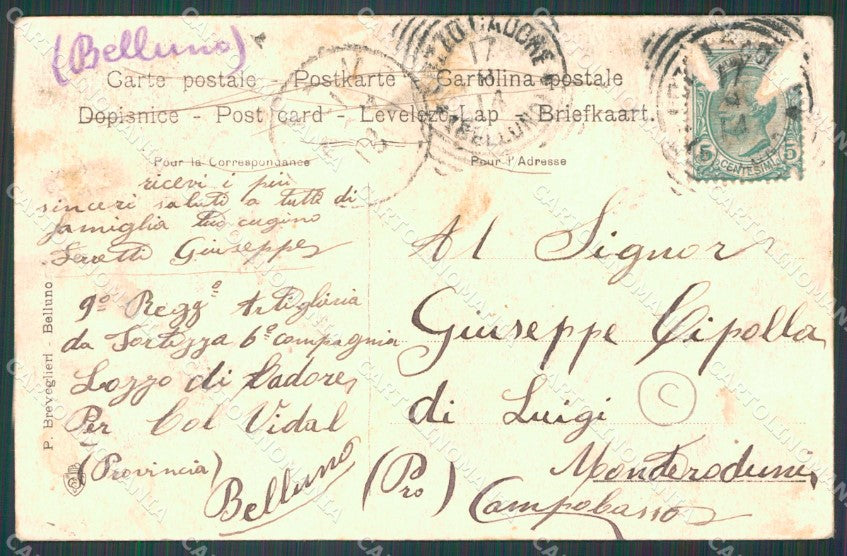 (Belluno)
Carte postale - Postkarte - Cartolina postale
Dopisnice - Post card - Levelező-Lap - Briefkaart.
LOZZO CADORE
17
14
(BELLUNO)
17
14
5 CENTESIMI 5
Pour la Correspondance
Pour l'Adresse
ricevi i più
sinceri saluti a tutti di
famiglia tuo cugino
Giuseppe
9º Reggº Artiglieria
da Fortezza 6ª compagnia
Lozzo di Cadore
Per Col Vidal
(Provincia)
Belluno
Al Signor
Giuseppe Cipolla
di Luigi
Monteroduni
(Pro) Campobasso
C
P. Breveglieri - Belluno
CARTOLINOMANIA